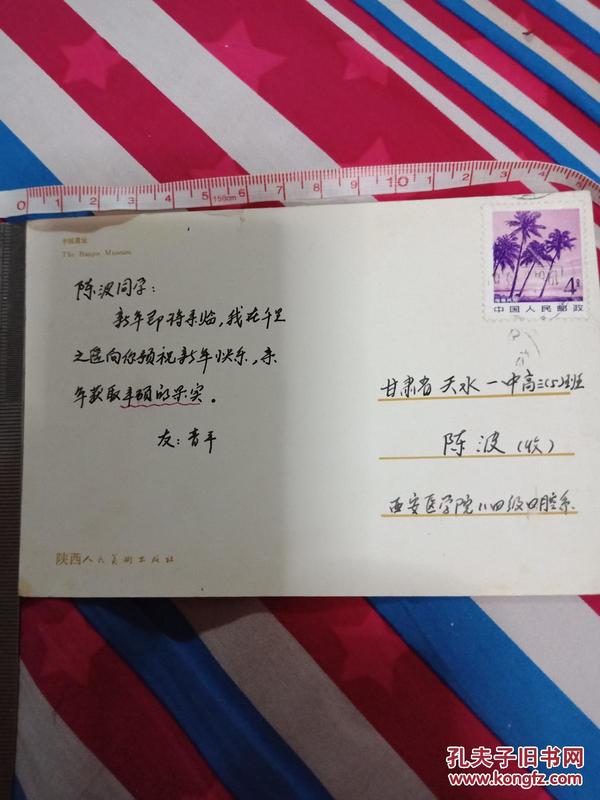 0 1 2 3 4 5 150cm 6 7 8 9 10 11 12 13
半坡遗址
The Banpo Museum
陈波同学：
新年即将来临，我在千里
之遥向你预祝新年快乐，来
年获取丰硕的果实。
友：青平
陕西人民美术出版社
4分
中国人民邮政
甘肃省天水一中高三(5)班
陈波(收)
西安医学院八四级口腔系
孔夫子旧书网
www.kongfz.com